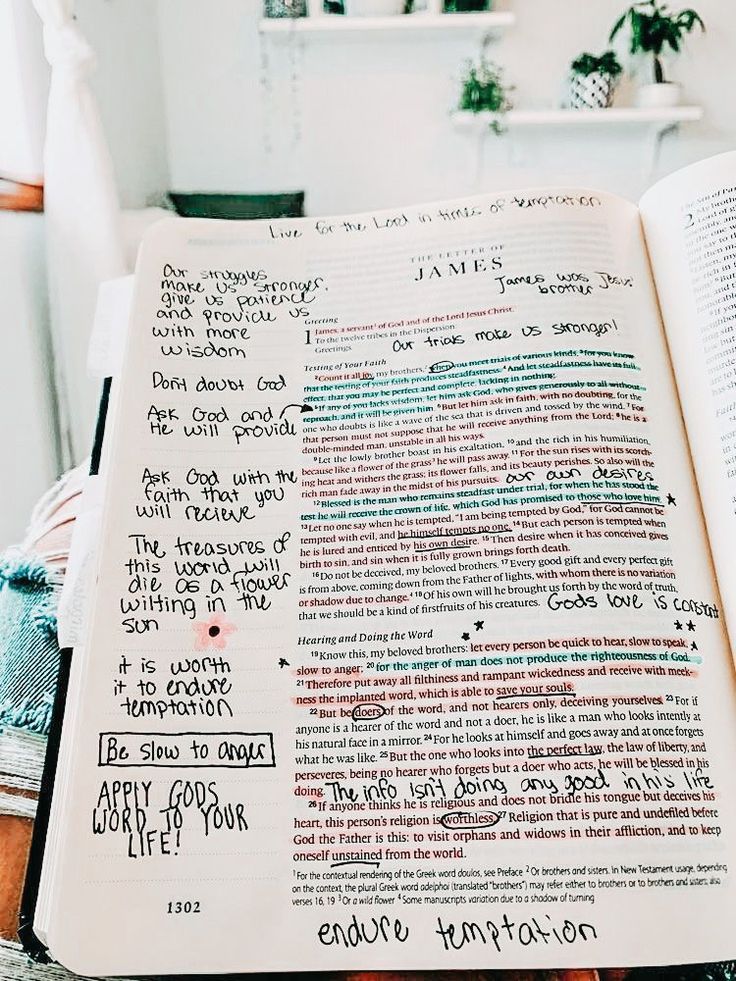 Live for the Lord in times of temptation
THE LETTER OF
JAMES
James was Jesus'
brother
Our struggles
make us stronger.
give us patience
and provide us
with more
wisdom
Don't doubt God
Ask God and
He will provide
Ask God with the
faith that you
will recieve
The treasures of
this world will
die as a flower
wilting in the
sun
it is worth
it to endure
temptation
Be slow to anger
APPLY GODS
WORD TO YOUR
LIFE!
1302
Greeting
1 James, a servant¹ of God and of the Lord Jesus Christ,
To the twelve tribes in the Dispersion:
Greetings.
Our trials make us stronger!
Testing of Your Faith
²Count it all joy, my brothers,² when you meet trials of various kinds, ³for you know
that the testing of your faith produces steadfastness. ⁴And let steadfastness have its full
effect, that you may be perfect and complete, lacking in nothing.
⁵If any of you lacks wisdom, let him ask God, who gives generously to all without
reproach, and it will be given him. ⁶But let him ask in faith, with no doubting, for the
one who doubts is like a wave of the sea that is driven and tossed by the wind. ⁷For
that person must not suppose that he will receive anything from the Lord; ⁸he is a
double-minded man, unstable in all his ways.
⁹Let the lowly brother boast in his exaltation, ¹⁰and the rich in his humiliation,
because like a flower of the grass³ he will pass away. ¹¹For the sun rises with its scorch-
ing heat and withers the grass; its flower falls, and its beauty perishes. So also will the
rich man fade away in the midst of his pursuits.
our own desires
¹²Blessed is the man who remains steadfast under trial, for when he has stood the
test he will receive the crown of life, which God has promised to those who love him.
¹³Let no one say when he is tempted, "I am being tempted by God," for God cannot be
tempted with evil, and he himself tempts no one. ¹⁴But each person is tempted when
he is lured and enticed by his own desire. ¹⁵Then desire when it has conceived gives
birth to sin, and sin when it is fully grown brings forth death.
¹⁶Do not be deceived, my beloved brothers. ¹⁷Every good gift and every perfect gift
is from above, coming down from the Father of lights, with whom there is no variation
or shadow due to change.⁴ ¹⁸Of his own will he brought us forth by the word of truth,
that we should be a kind of firstfruits of his creatures.
Gods love is constant
Hearing and Doing the Word
¹⁹Know this, my beloved brothers: let every person be quick to hear, slow to speak,
slow to anger; ²⁰for the anger of man does not produce the righteousness of God.
²¹Therefore put away all filthiness and rampant wickedness and receive with meek-
ness the implanted word, which is able to save your souls.
²²But be doers of the word, and not hearers only, deceiving yourselves. ²³For if
anyone is a hearer of the word and not a doer, he is like a man who looks intently at
his natural face in a mirror. ²⁴For he looks at himself and goes away and at once forgets
what he was like. ²⁵But the one who looks into the perfect law, the law of liberty, and
perseveres, being no hearer who forgets but a doer who acts, he will be blessed in his
doing.
The info isn't doing any good in his life
²⁶If anyone thinks he is religious and does not bridle his tongue but deceives his
heart, this person's religion is worthless. ²⁷Religion that is pure and undefiled before
God the Father is this: to visit orphans and widows in their affliction, and to keep
oneself unstained from the world.
¹For the contextual rendering of the Greek word doulos, see Preface ²Or brothers and sisters. In New Testament usage, depending
on the context, the plural Greek word adelphoi (translated "brothers") may refer either to brothers or to brothers and sisters; also
verses 16, 19 ³Or a wild flower ⁴Some manuscripts variation due to a shadow of turning
endure temptation